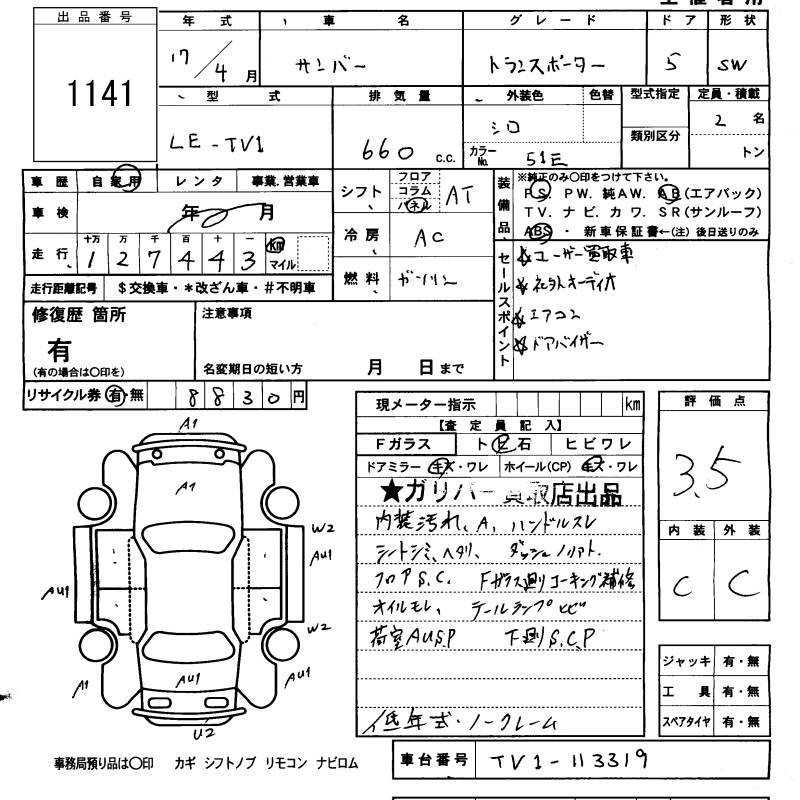 出品番号
1141
年式 車名 グレード ドア 形状
17/4月 サンバー トランスポーター 5 SW
型式 排気量 外装色 色替 型式指定 定員・積載
LE-TV1 660 C.C. シロ 類別区分 2名
カラーNo. 51E トン
車歴 自家用 レンタ 事業.営業車
車検 年 月
走行 十万 万 千 百 十 一
1 2 7 4 4 3 km マイル
走行距離記号 $交換車・*改ざん車・#不明車
シフト フロア コラム パネル AT
冷房 AC
燃料 ガソリン
装備品 ※純正のみ○印をつけて下さい。
PS. PW. 純AW. AB(エアバック)
TV. ナビ. カワ. SR(サンルーフ)
ABS・ 新車保証書←(注) 後日送りのみ
セールスポイント
☆ユーザー買取車
☆社外オーディオ
☆エアコン
☆ドアバイザー
修復歴 箇所
有
(有の場合は○印を)
注意事項
名変期日の短い方 月 日まで
リサイクル券 有・無 8830円
現メーター指示 km
【査定員記入】
Fガラス ト ビ 石 ヒビワレ
ドアミラー キズ・ワレ ホイール(CP) キズ・ワレ
★ガリバー買取店出品
内装汚れ、A、ハンドルスレ
シートシミ、ヘタリ、 ダッシュノリアト.
フロアS.C. Fガラス廻りコーキング補修
オイルモレ、 テールランプヒビ
荷室AUSP 下廻S.C.P
低年式・ノークレーム
評価点
3.5
内装 外装
C C
ジャッキ 有・無
工具 有・無
スペアタイヤ 有・無
A1
A1
W2
AU1
AU1
W2
A1
AU1
AU1
U2
事務局預り品は○印 カギ シフトノブ リモコン ナビロム
車台番号 TV1-113319